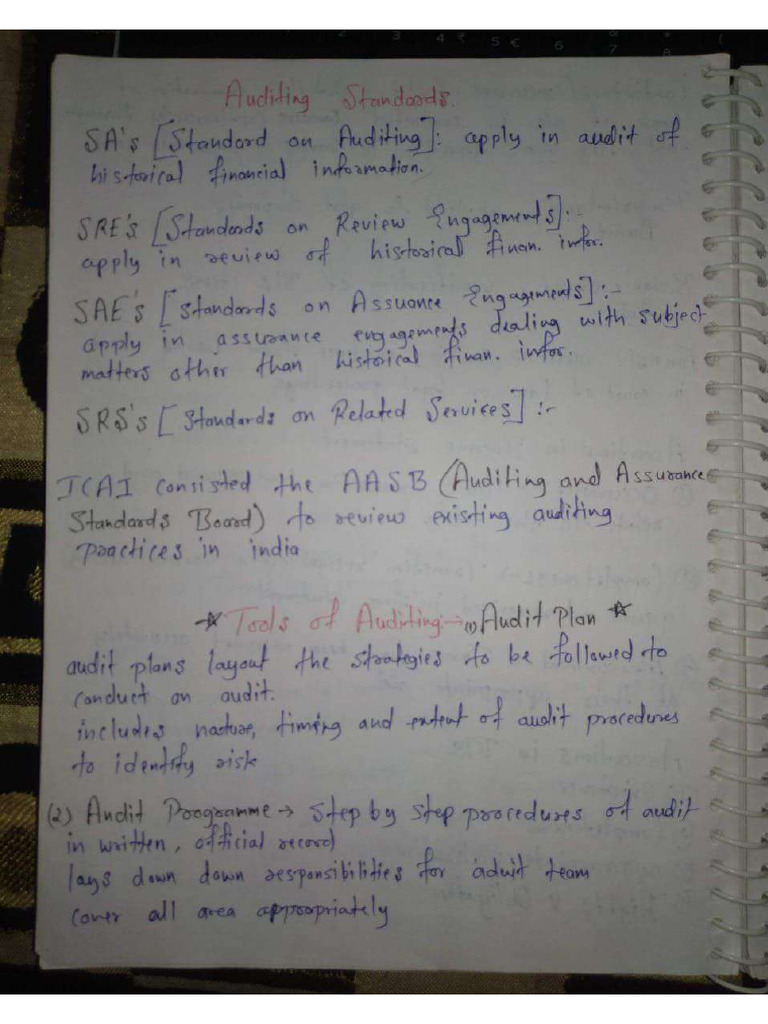 Auditing Standards.
SA's [Standard on Auditing]: apply in audit of
historical financial information.
SRE's [Standards on Review Engagements]:-
apply in review of historical finan. infor.
SAE's [Standards on Assuance Engagements]:-
apply in assurance engagements dealing with subject
matters other than historical finan. infor.
SRS's [Standards on Related Services]:-
ICAI consisted the AASB (Auditing and Assurance
Standards Board) to review existing auditing
practices in india
☆ Tools of Auditing → (1) Audit Plan ☆
audit plans layout the strategies to be followed to
conduct an audit.
includes nature, timing and extent of audit procedures
to identify risk
(2) Audit Programme → Step by step procedures of audit
in written, official record
lays down down responsibilities for aduit team
cover all area appropriately